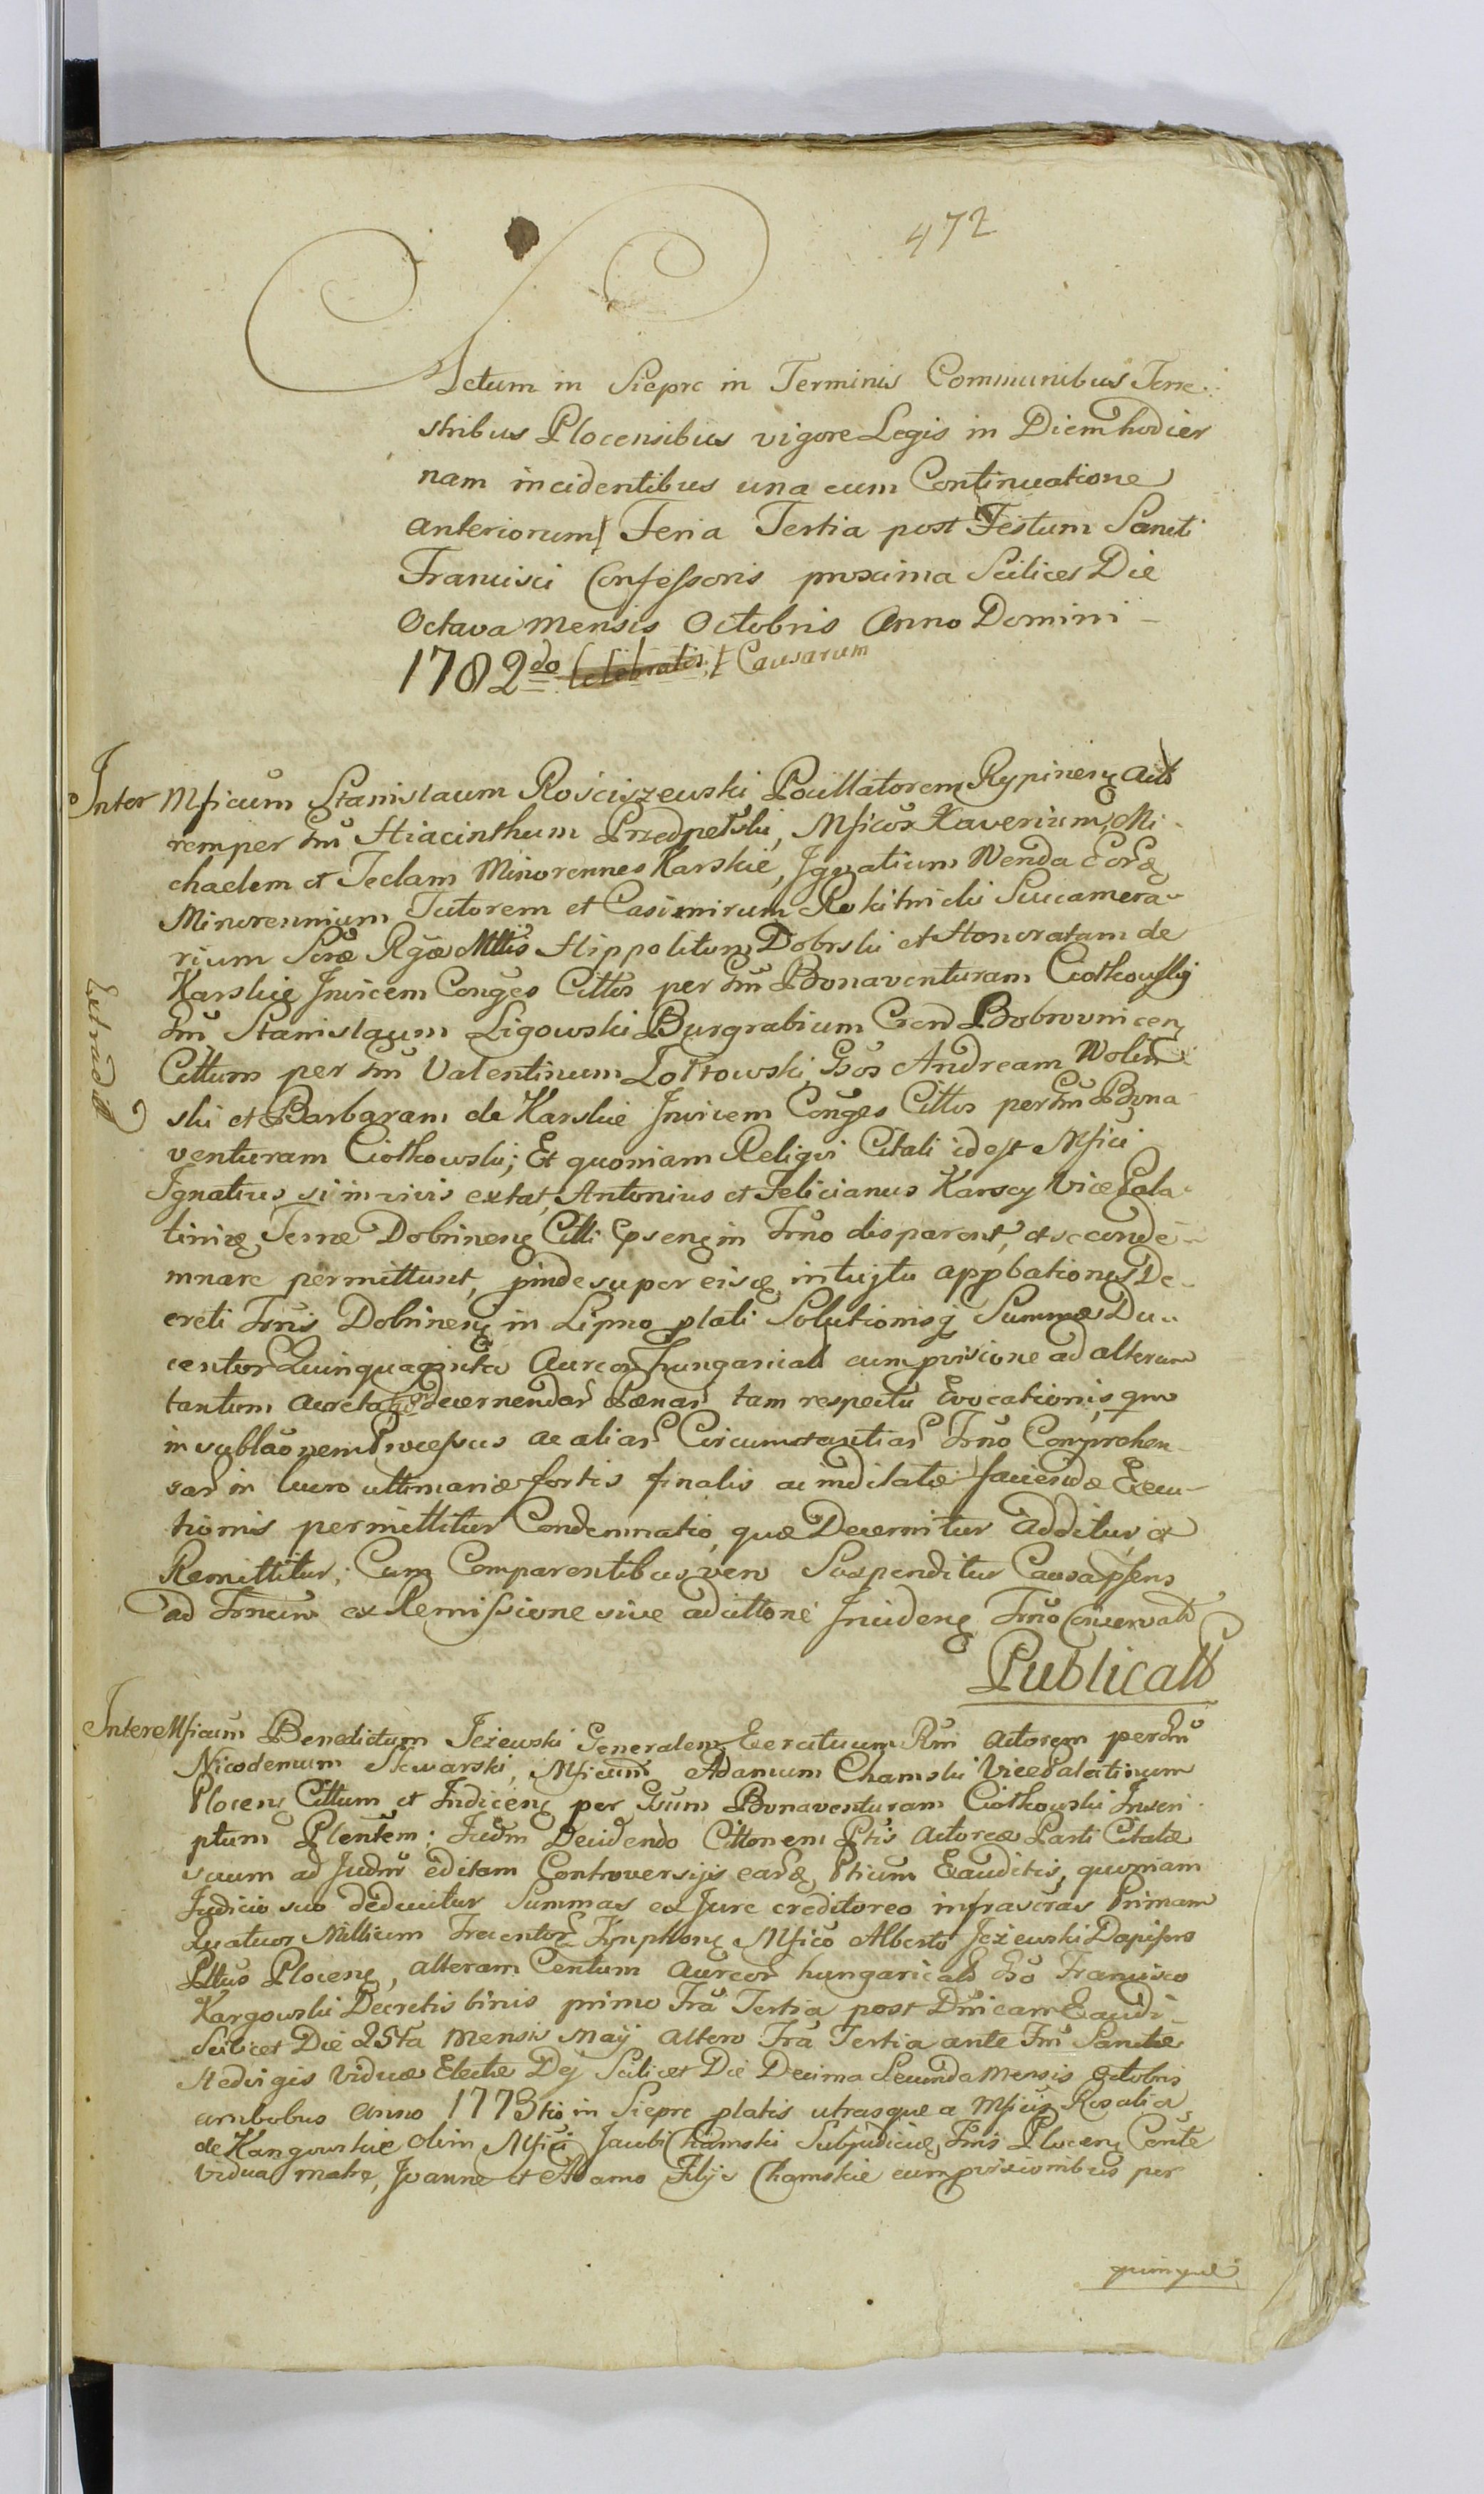 472
Actum in Siepre in Terminis Communibus Terre-
stribus Plocensibus vigore Legis in Diem hodier
nam incidentibus una cum Continuatione
anteriorum Feria Tertia post Festum Sancti
Francisci Confessoris proxima Scilicet Die
Octava Mensis Octobris Anno Domini
1782do Celebratis Causarum
Inter Mficum Stanislaum Rościszewski Pocillatorem Rypinens Acto
rem per Gsum Hiacinthum Przedpełski, Mficos Xaverium, Mi-
chaelem et Teclam Minorennes Karskie, Ignatium Nenda eorq
Minorennium Tutorem et Casimirum Rokitnicki Succamera-
rium Scrae Rgae Mttis Hippolitum Dobrski et Honoratam de
Karskie Invicem Conges Cittos per Gsum Bonaventuram Ciotkowski
Gsum Stanislaum Ligowski Burgrabium Bobrovnicen
Cittum per Gsum Valentinum Gsos Andream Wolin
ski et Barbaram de Karskie Invicem Conges Cittos per Gsum Bona-
venturam Ciotkowski; Et quoniam Religvi Citati id est Mfici
Ignatius si in vivis extat, Antonius et Felicianus Karscy Vice Pala-
tinidae Terrae Dobrinens Citti in Trno disparent, et se conde-
mnare permittunt, proinde super eisq intuitu appbationis De-
creti Trris Dobrinens in Lipno plati Solutionisq Summae Du-
centor Quinquaginta Aureor hungarical cum pvisione ad alterum
tantum decernendar Paenar tam respectu Evocationis quo
in Processus ac aliar Circumstantiar Trno Comprehen-
sar in lucro ultimariae fortis finalis ac inditatae faciendae Execu-
tionis permittitur Condemnatio, quae Decernitur Additur, et
Remittitur; Cum Comparentibus vero Suspenditur Causa psens
ad Trnum ex Remissione sive ad cittone Incidens Trno Conservat
Publicat
Extradit
Inter Mficum Benedictum Jeżewski Generalem Exercituum Rni Actorem per Gsum
Nicodemum Skwarski, Mficum Adamum Chamski Vicepalatinum
Plocens Cittum et Indicens per Gsum Bonaventuram Ciotkowski Inscri-
ptum Plentem; Judm Decidendo Cittonem Ptis Actoreae Parti Citatae
suum ad Judm editam Controversijs earq Ptium Exauditis, quoniam
Judicio suo deducitur Summas ex Jure creditoreo infrascras Primam
Quatuor Millium Trecentor Tymphons Mfico Alberto Jeżewski Dapifero
Pttus Plocens, alteram Centum Aureor hungarical Gso Francisco
Kargowski Decretis binis primo Fra Tertia post Dnicam Exaudi-
Scilicet Die 25ta Mensis Maij altero Fra Tertia ante Fm Sanctae
Hedvigis Viduae Electae Dej Scilicet Die Decima Secunda Mensis Octobris
ambobus Anno 1773tio in Siepre platis utrasque a Mficis Rosalia
de Kargowskie olim Mfici Jacobi Chamski Subjudicis Trris Plocens Conte
Vidua matre, Joanne et Adamo Filijs Chamskie cum pvisionibus per
quinque